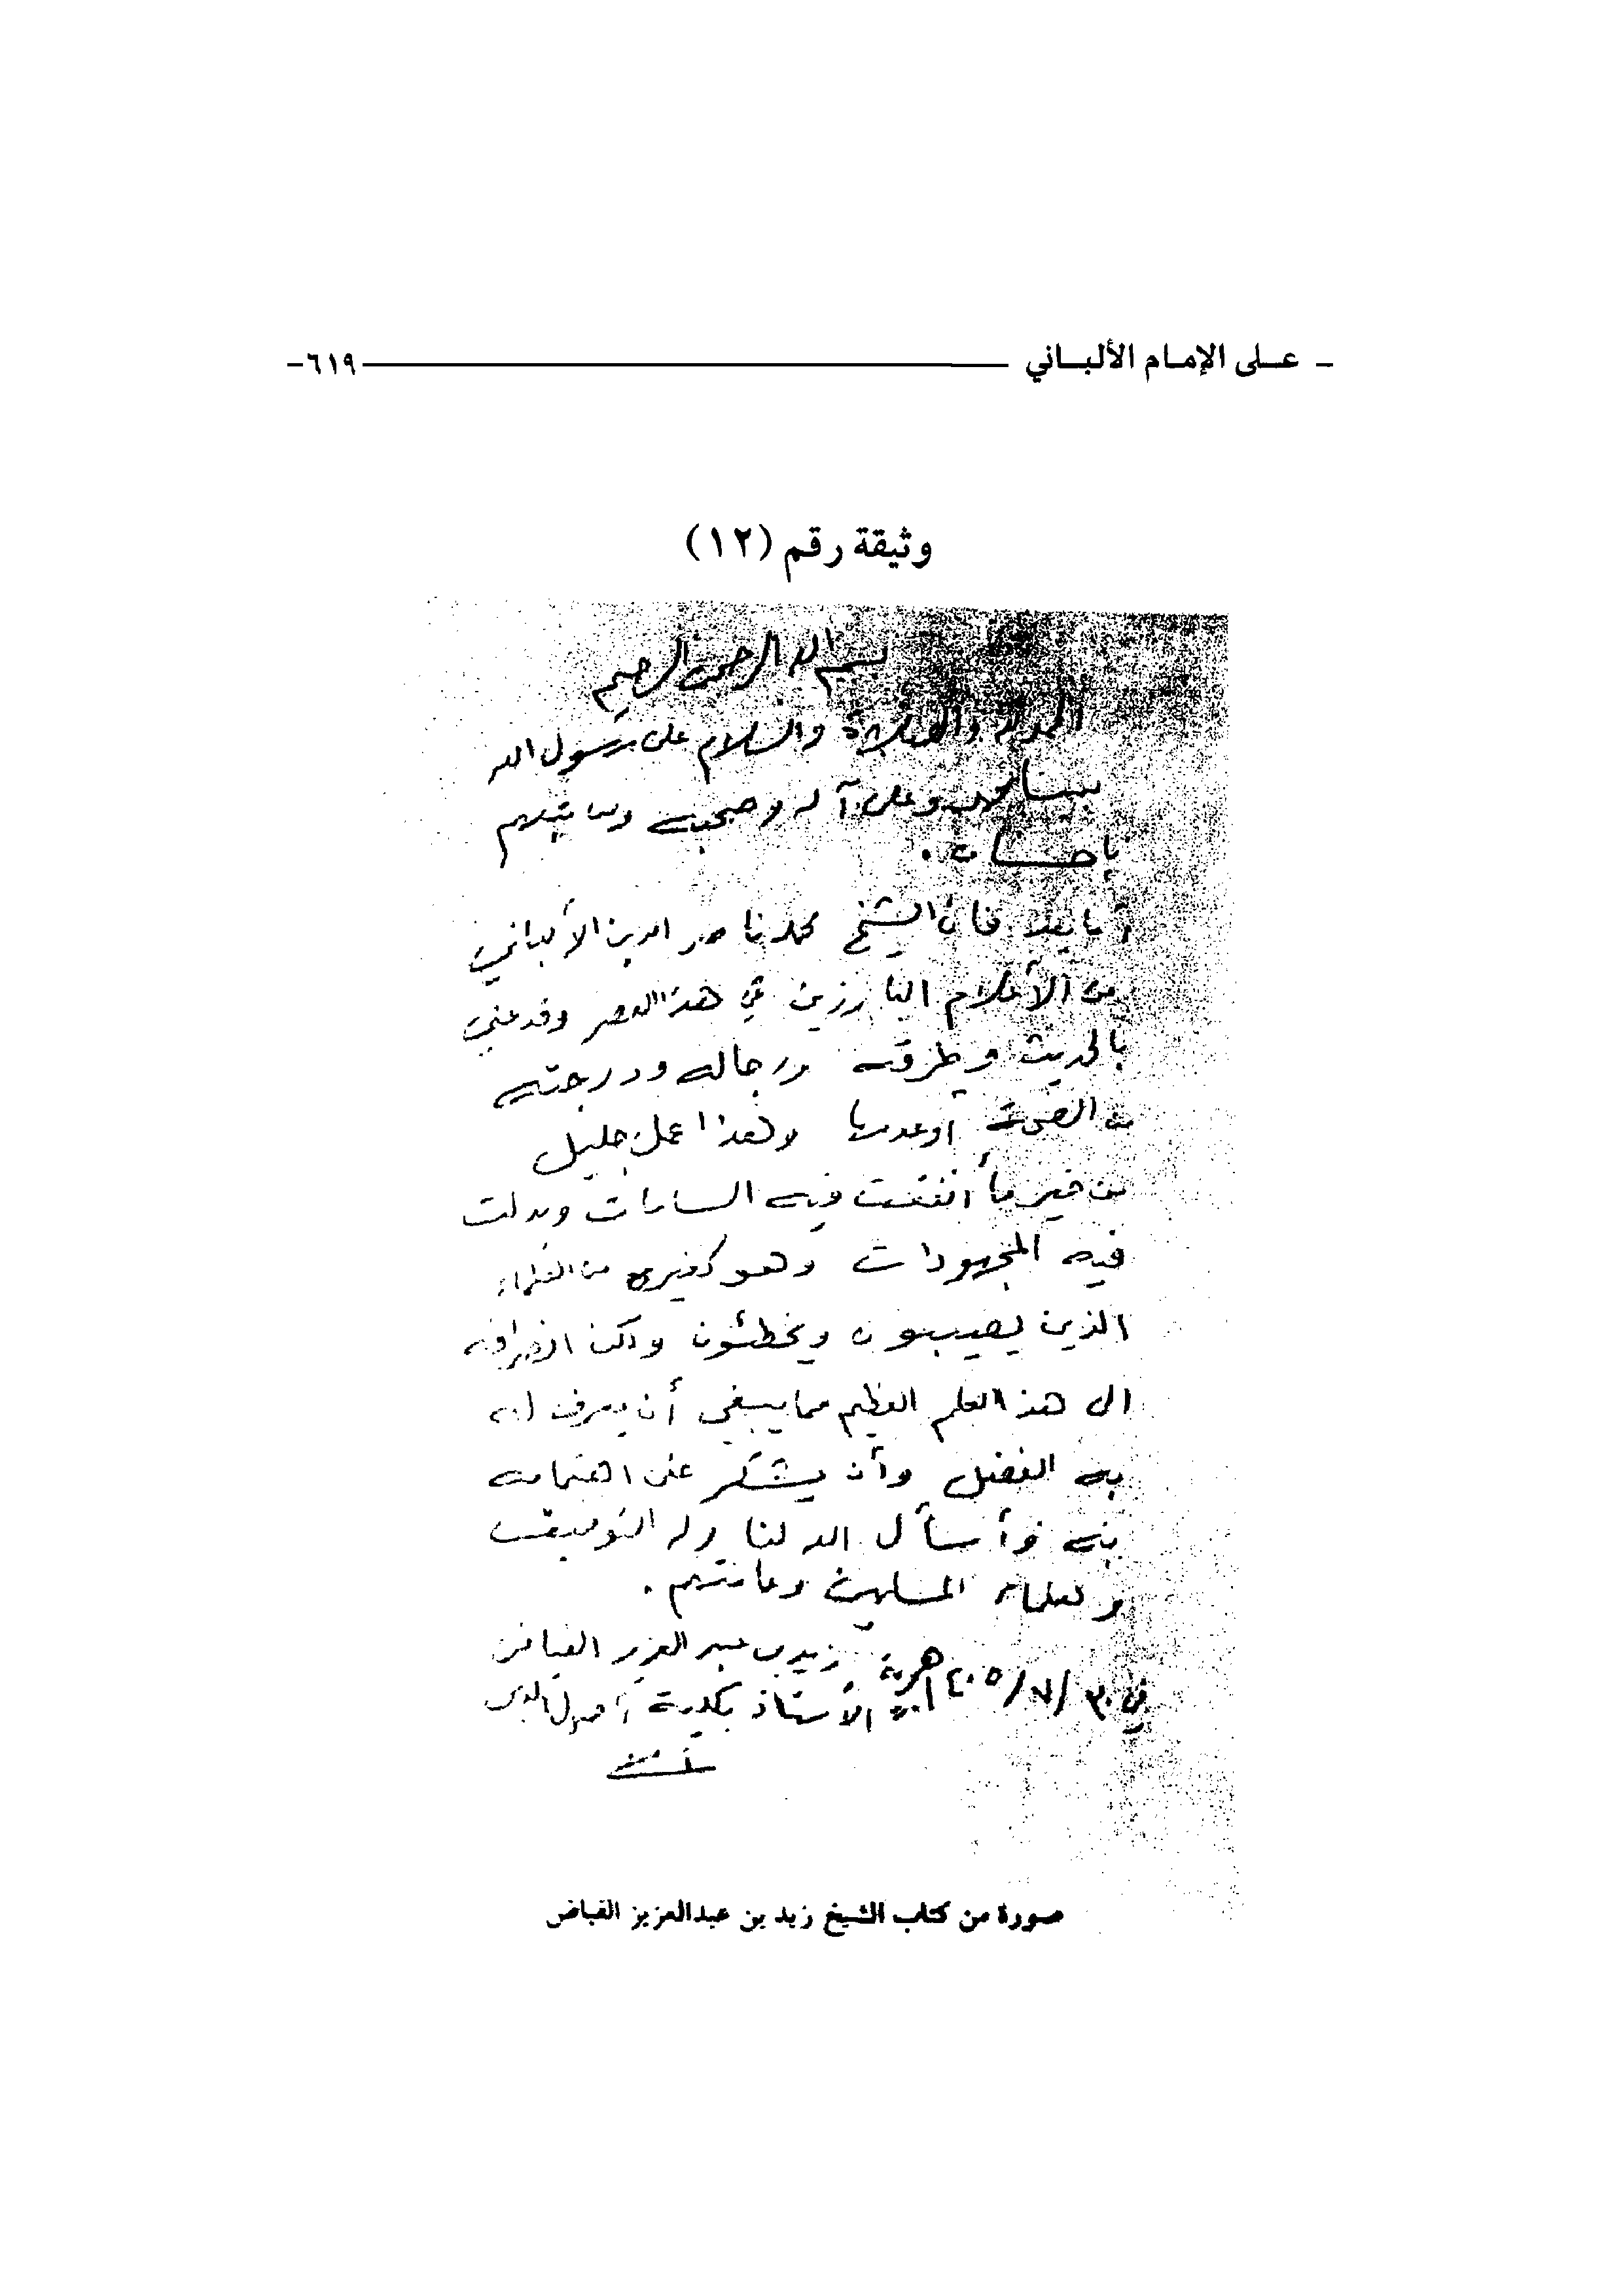 ـ عـلى الإمـام الألبـاني ـــ ٦١٩ـ
وثيقة رقم (١٢)
بسم الله الرحمن الرحيم
الحمد لله والصلاة والسلام على رسول الله
نبينا محمد وعلى آله وصحبه وتابعيهم
بإحسان .
أما بعد فان الشيخ محمد ناصر الدين الألباني
من الأعلام البارزين في هذا العصر وقد عني
بالحديث وطرقه ورجاله ودرجته
من الصحة أو عدمها وهذا عمل جليل
من خير ما أنفقت فيه الساعات وبذلت
فيه المجهودات وهو كغيره من العلماء
الذين يصيبون ويخطئون ولكن انصرافه
الى هذا العلم العظيم مما ينبغي أن يعرف له
به الفضل وأن يشكر على اهتمامه
به وأسأل الله لنا وله التوفيق
ولعلماء المسلمين وعامتهم .
زيد بن عبد العزيز الفياض
في ٣٠/٧/١٤٠٥ هجرية
الأستاذ بكلية أصول الدين
صورة من كتاب الشيخ زيد بن عبدالعزيز الفياض